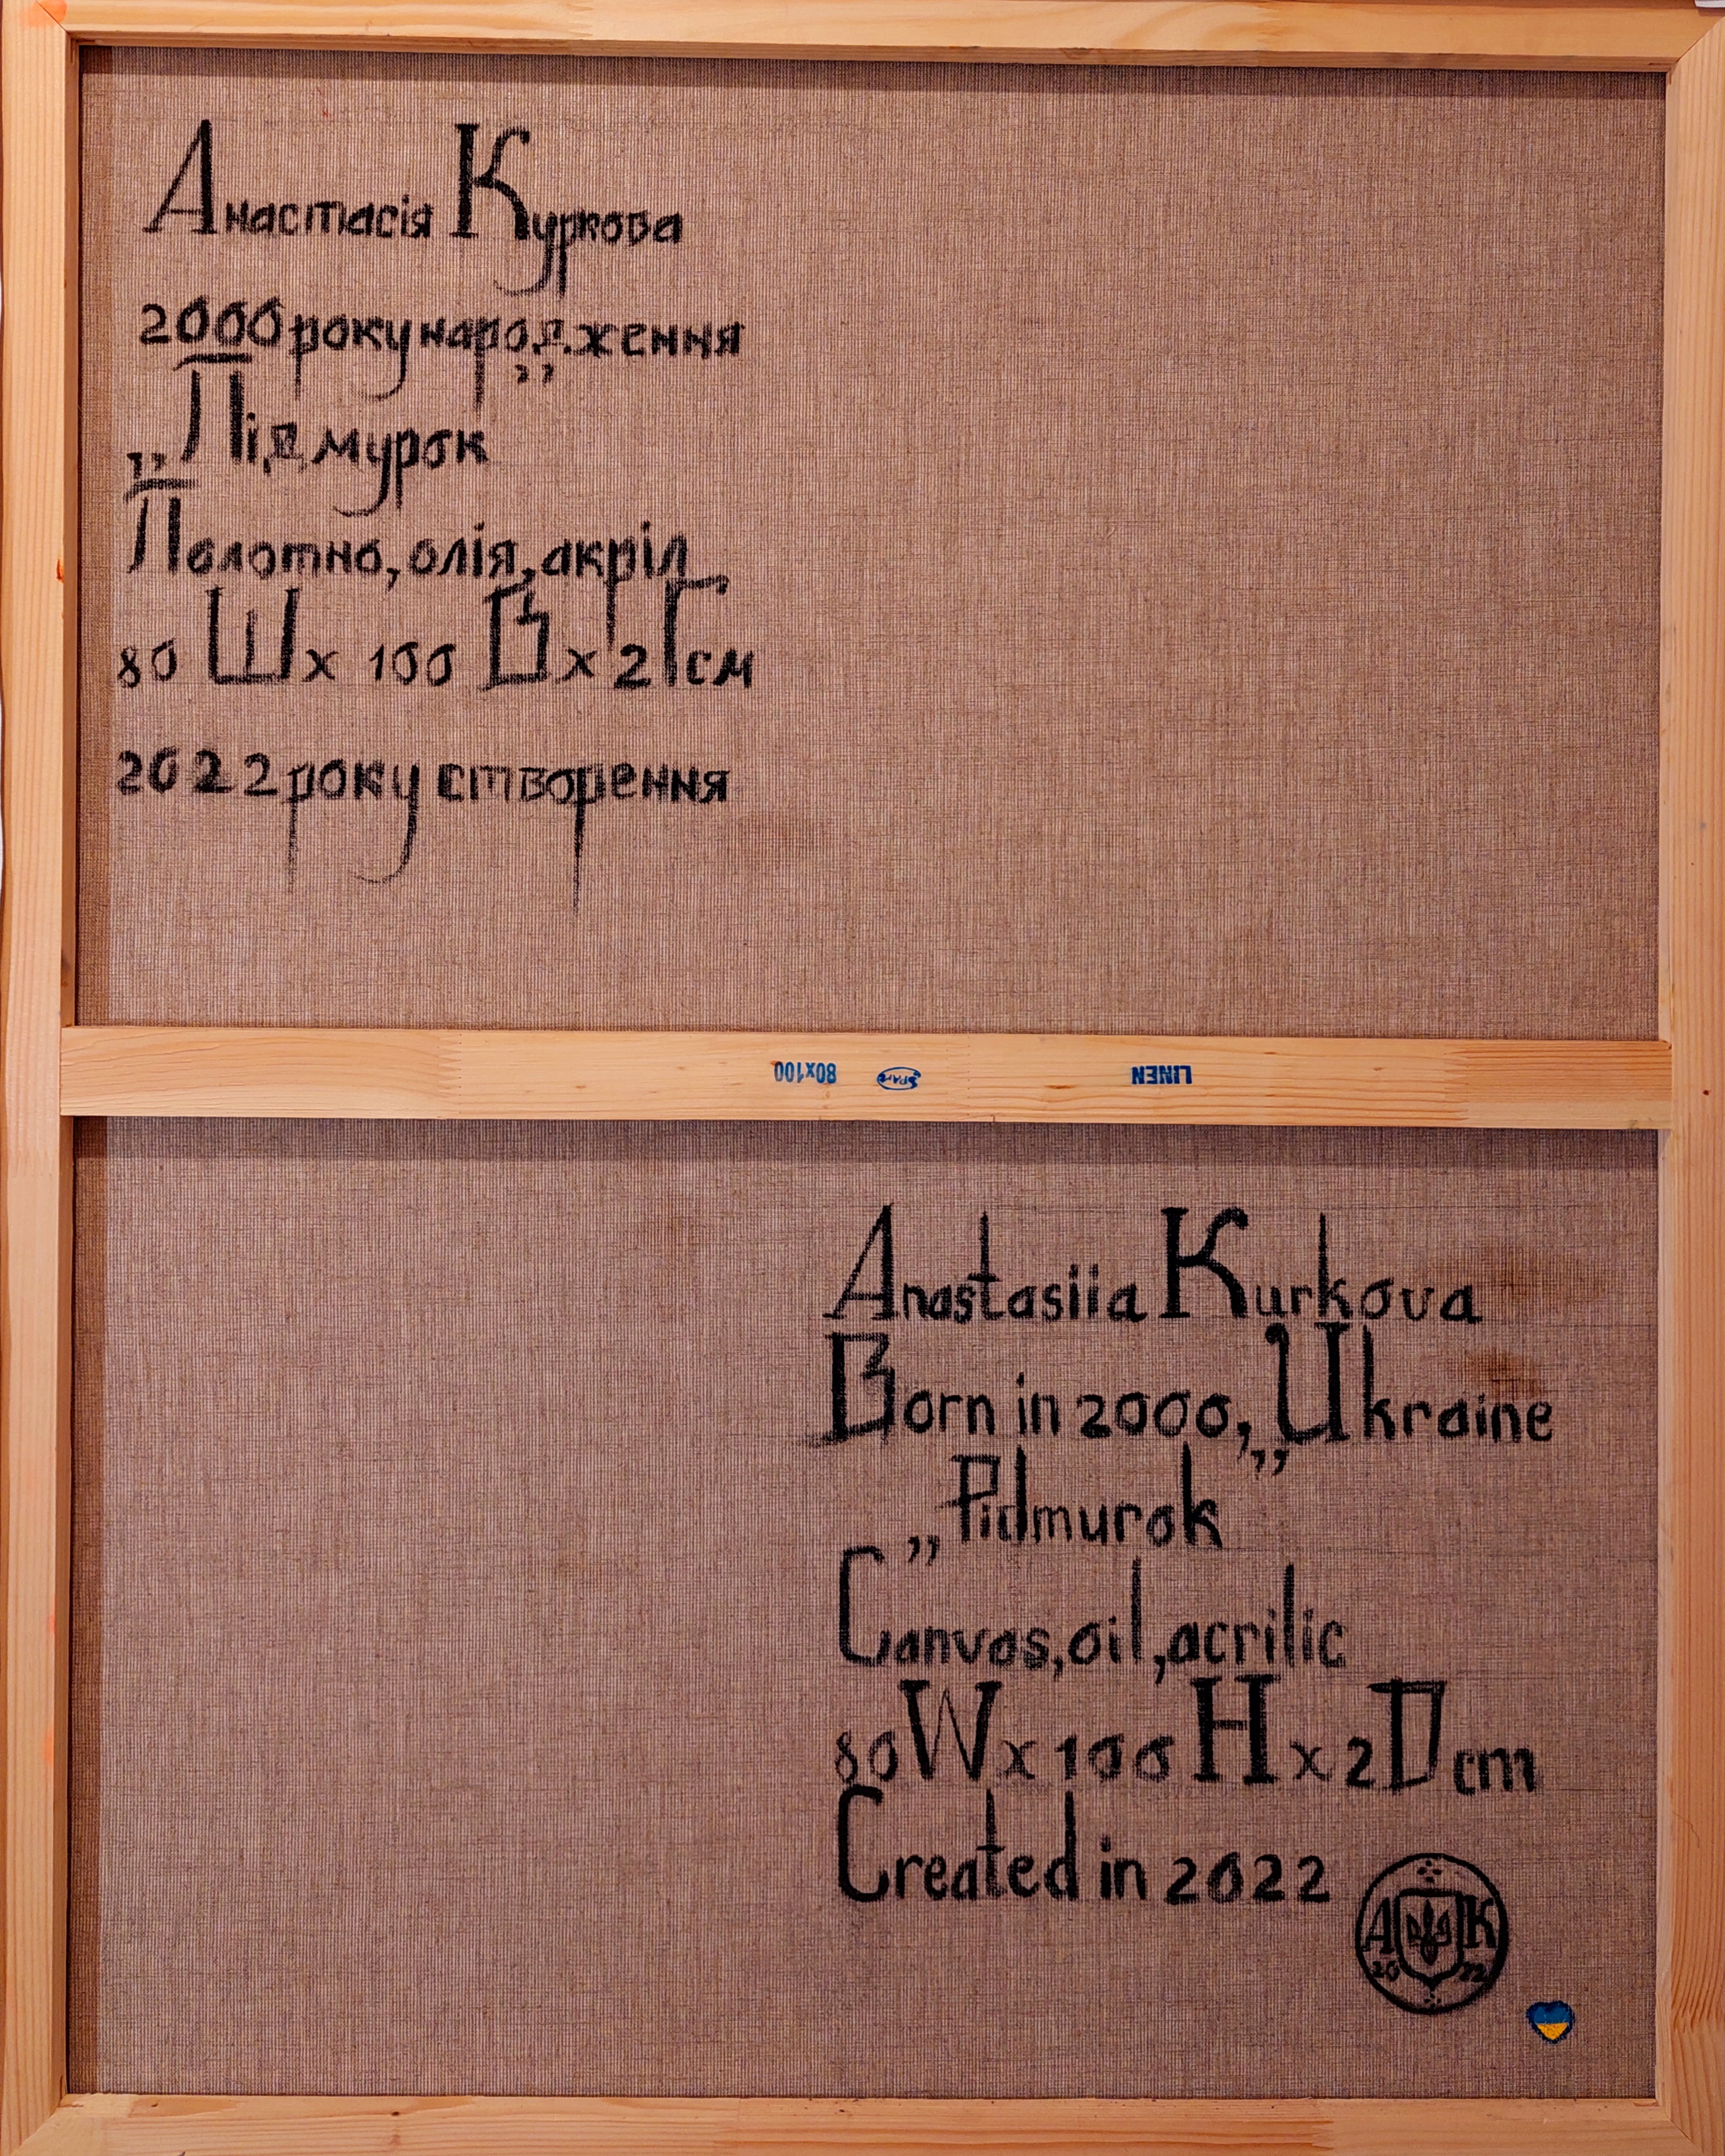 Анастасія Куркова
2000 року народження
„Підмурок”
Полотно, олія, акріл
80 Ш х 100 В х 2 Г см
2022 року створення
80x100 LINEN
Anastasiia Kurkova
Born in 2000, Ukraine
„Pidmurok”
Canvas, oil, acrilic
80 W x 100 H x 2 D cm
Created in 2022
А К
20 22